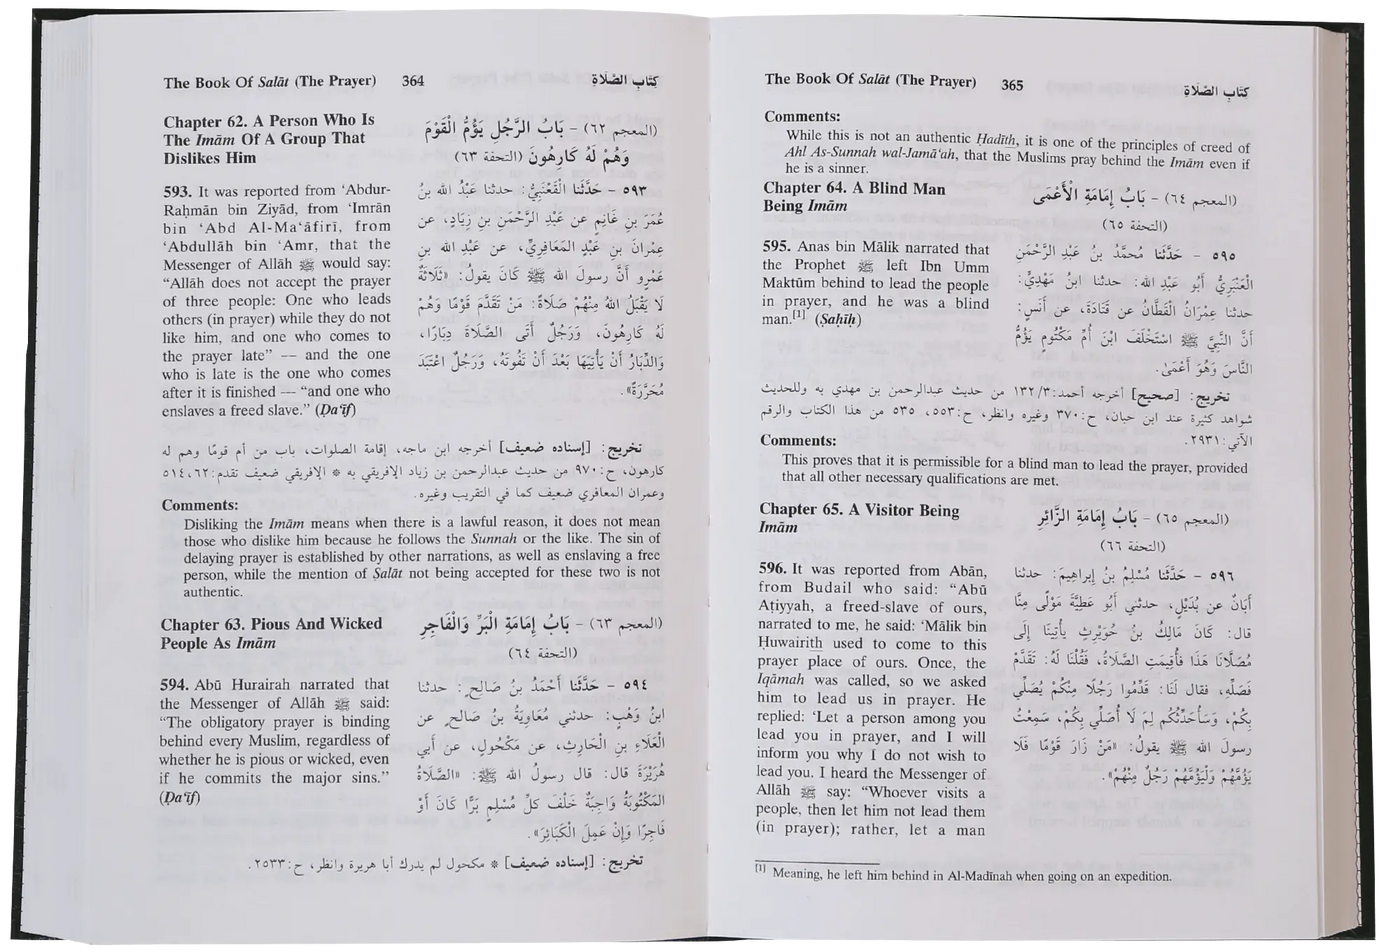 The Book Of Salāt (The Prayer) 364 كِتَابُ الصَّلَاةِ
Chapter 62. A Person Who Is
The Imām Of A Group That
Dislikes Him
(المعجم ٦٢) - بَابُ الرَّجُلِ يَؤُمُّ الْقَوْمَ
وَهُمْ لَهُ كَارِهُونَ (التحفة ٦٣)
593. It was reported from ‘Abdur-
Raḥmān bin Ziyād, from ‘Imrān
bin ‘Abd Al-Ma‘āfirī, from
‘Abdullāh bin ‘Amr, that the
Messenger of Allāh ﷺ would say:
“Allāh does not accept the prayer
of three people: One who leads
others (in prayer) while they do not
like him, and one who comes to
the prayer late” — and the one
who is late is the one who comes
after it is finished — “and one who
enslaves a freed slave.” (Ḍa‘īf)
٥٩٣ - حَدَّثَنَا الْقَعْنَبِيُّ: حدثنا عَبْدُ الله بنُ
عُمَرَ بنِ غَانِمٍ عن عَبْدِ الرَّحْمَنِ بنِ زِيَادٍ، عن
عِمْرَانَ بنِ عَبْدٍ المَعَافِرِيِّ، عن عَبْدِ الله بنِ
عَمْرٍو أنَّ رسولَ الله ﷺ كَانَ يقولُ: «ثَلَاثَةٌ
لَا يَقْبَلُ اللهُ مِنْهُمْ صَلَاةً: مَنْ تَقَدَّمَ قَوْمًا وَهُمْ
لَهُ كَارِهُونَ، وَرَجُلٌ أَتَى الصَّلَاةَ دِبَارًا،
وَالدِّبَارُ أنْ يَأْتِيَهَا بَعْدَ أنْ تَفُوتَهُ، وَرَجُلٌ اعْتَبَدَ
مُحَرَّرَةً».
تخريج: [إسناده ضعيف] أخرجه ابن ماجه، إقامة الصلوات، باب من أم قومًا وهم له
كارهون، ح: ٩٧٠ من حديث عبدالرحمن بن زياد الإفريقي به * الإفريقي ضعيف تقدم: ٦٢، ٥١٤
وعمران المعافري ضعيف كما في التقريب وغيره.
Comments:
Disliking the Imām means when there is a lawful reason, it does not mean
those who dislike him because he follows the Sunnah or the like. The sin of
delaying prayer is established by other narrations, as well as enslaving a free
person, while the mention of Salāt not being accepted for these two is not
authentic.
Chapter 63. Pious And Wicked
People As Imām
(المعجم ٦٣) - بَابُ إِمَامَةِ الْبَرِّ وَالْفَاجِرِ
(التحفة ٦٤)
594. Abū Hurairah narrated that
the Messenger of Allāh ﷺ said:
“The obligatory prayer is binding
behind every Muslim, regardless of
whether he is pious or wicked, even
if he commits the major sins.”
(Ḍa‘īf)
٥٩٤ - حَدَّثَنَا أَحْمَدُ بنُ صَالِحٍ: حدثنا
ابنُ وَهْبٍ: حدثني مُعَاوِيَةُ بنُ صَالحٍ عن
الْعَلَاءِ بنِ الْحَارِثِ، عن مَكْحُولٍ، عن أبي
هُرَيْرَةَ قال: قال رسولُ الله ﷺ: «الصَّلَاةُ
المَكْتُوبَةُ وَاجِبَةٌ خَلْفَ كلِّ مُسْلِمٍ بَرًّا كَانَ أوْ
فَاجِرًا وَإِنْ عَمِلَ الْكَبَائِرَ».
تخريج: [إسناده ضعيف] * مكحول لم يدرك أبا هريرة وانظر، ح: ٢٥٣٣.
The Book Of Salāt (The Prayer) 365 كِتَابُ الصَّلَاةِ
Comments:
While this is not an authentic Ḥadīth, it is one of the principles of creed of
Ahl As-Sunnah wal-Jamā‘ah, that the Muslims pray behind the Imām even if
he is a sinner.
Chapter 64. A Blind Man
Being Imām
(المعجم ٦٤) - بَابُ إِمَامَةِ الْأَعْمَى
(التحفة ٦٥)
595. Anas bin Mālik narrated that
the Prophet ﷺ left Ibn Umm
Maktūm behind to lead the people
in prayer, and he was a blind
man.[1] (Ṣaḥīḥ)
٥٩٥ - حَدَّثَنَا مُحمَّدُ بنُ عَبْدِ الرَّحْمَنِ
الْعَنْبَرِيُّ أَبُو عَبْدِ الله: حدثنا ابنُ مَهْدِيٍّ:
حدثنا عِمْرَانُ الْقَطَّانُ عن قَتَادَةَ، عن أَنَسٍ:
أنَّ النَّبيَّ ﷺ اسْتَخْلَفَ ابْنَ أُمِّ مَكْتُومٍ يَؤُمُّ
النَّاسَ وَهُوَ أَعْمَىٰ.
تخريج: [صحيح] أخرجه أحمد: ٣/ ١٣٢ من حديث عبدالرحمن بن مهدي به وللحديث
شواهد كثيرة عند ابن حبان، ح: ٣٧٠ وغيره وانظر، ح: ٥٥٣، ٥٣٥ من هذا الكتاب والرقم
الآتي: ٢٩٣١.
Comments:
This proves that it is permissible for a blind man to lead the prayer, provided
that all other necessary qualifications are met.
Chapter 65. A Visitor Being
Imām
(المعجم ٦٥) - بَابُ إِمَامَةِ الزَّائِرِ
(التحفة ٦٦)
596. It was reported from Abān,
from Budail who said: “Abū
Aṭiyyah, a freed-slave of ours,
narrated to me, he said: ‘Mālik bin
Ḥuwairith used to come to this
prayer place of ours. Once, the
Iqāmah was called, so we asked
him to lead us in prayer. He
replied: ‘Let a person among you
lead you in prayer, and I will
inform you why I do not wish to
lead you. I heard the Messenger of
Allāh ﷺ say: “Whoever visits a
people, then let him not lead them
(in prayer); rather, let a man
٥٩٦ - حَدَّثَنَا مُسْلِمُ بنُ إبراهِيمَ: حدثنا
أَبَانُ عن بُدَيْلٍ، حدثني أَبُو عَطِيَّةَ مَوْلًى مِنَّا
قال: كَانَ مَالِكُ بنُ حُوَيْرِثٍ يأْتِينَا إِلَى
مُصَلَّانَا هَذَا فأُقِيمَتِ الصَّلَاةُ، فَقُلْنَا لَهُ: تَقَدَّمْ
فَصَلِّهِ، فقال لَنَا: قَدِّمُوا رَجُلًا مِنْكُم يُصَلِّي
بِكُمْ، وَسَأُحَدِّثُكُم لِمَ لَا أُصَلِّي بِكُمْ، سَمِعْتُ
رسولَ الله ﷺ يقولُ: «مَنْ زَارَ قَوْمًا فَلَا
يَؤُمَّهُمْ وَلْيَؤُمَّهُمْ رَجُلٌ مِنْهُمْ».
[1] Meaning, he left him behind in Al-Madīnah when going on an expedition.